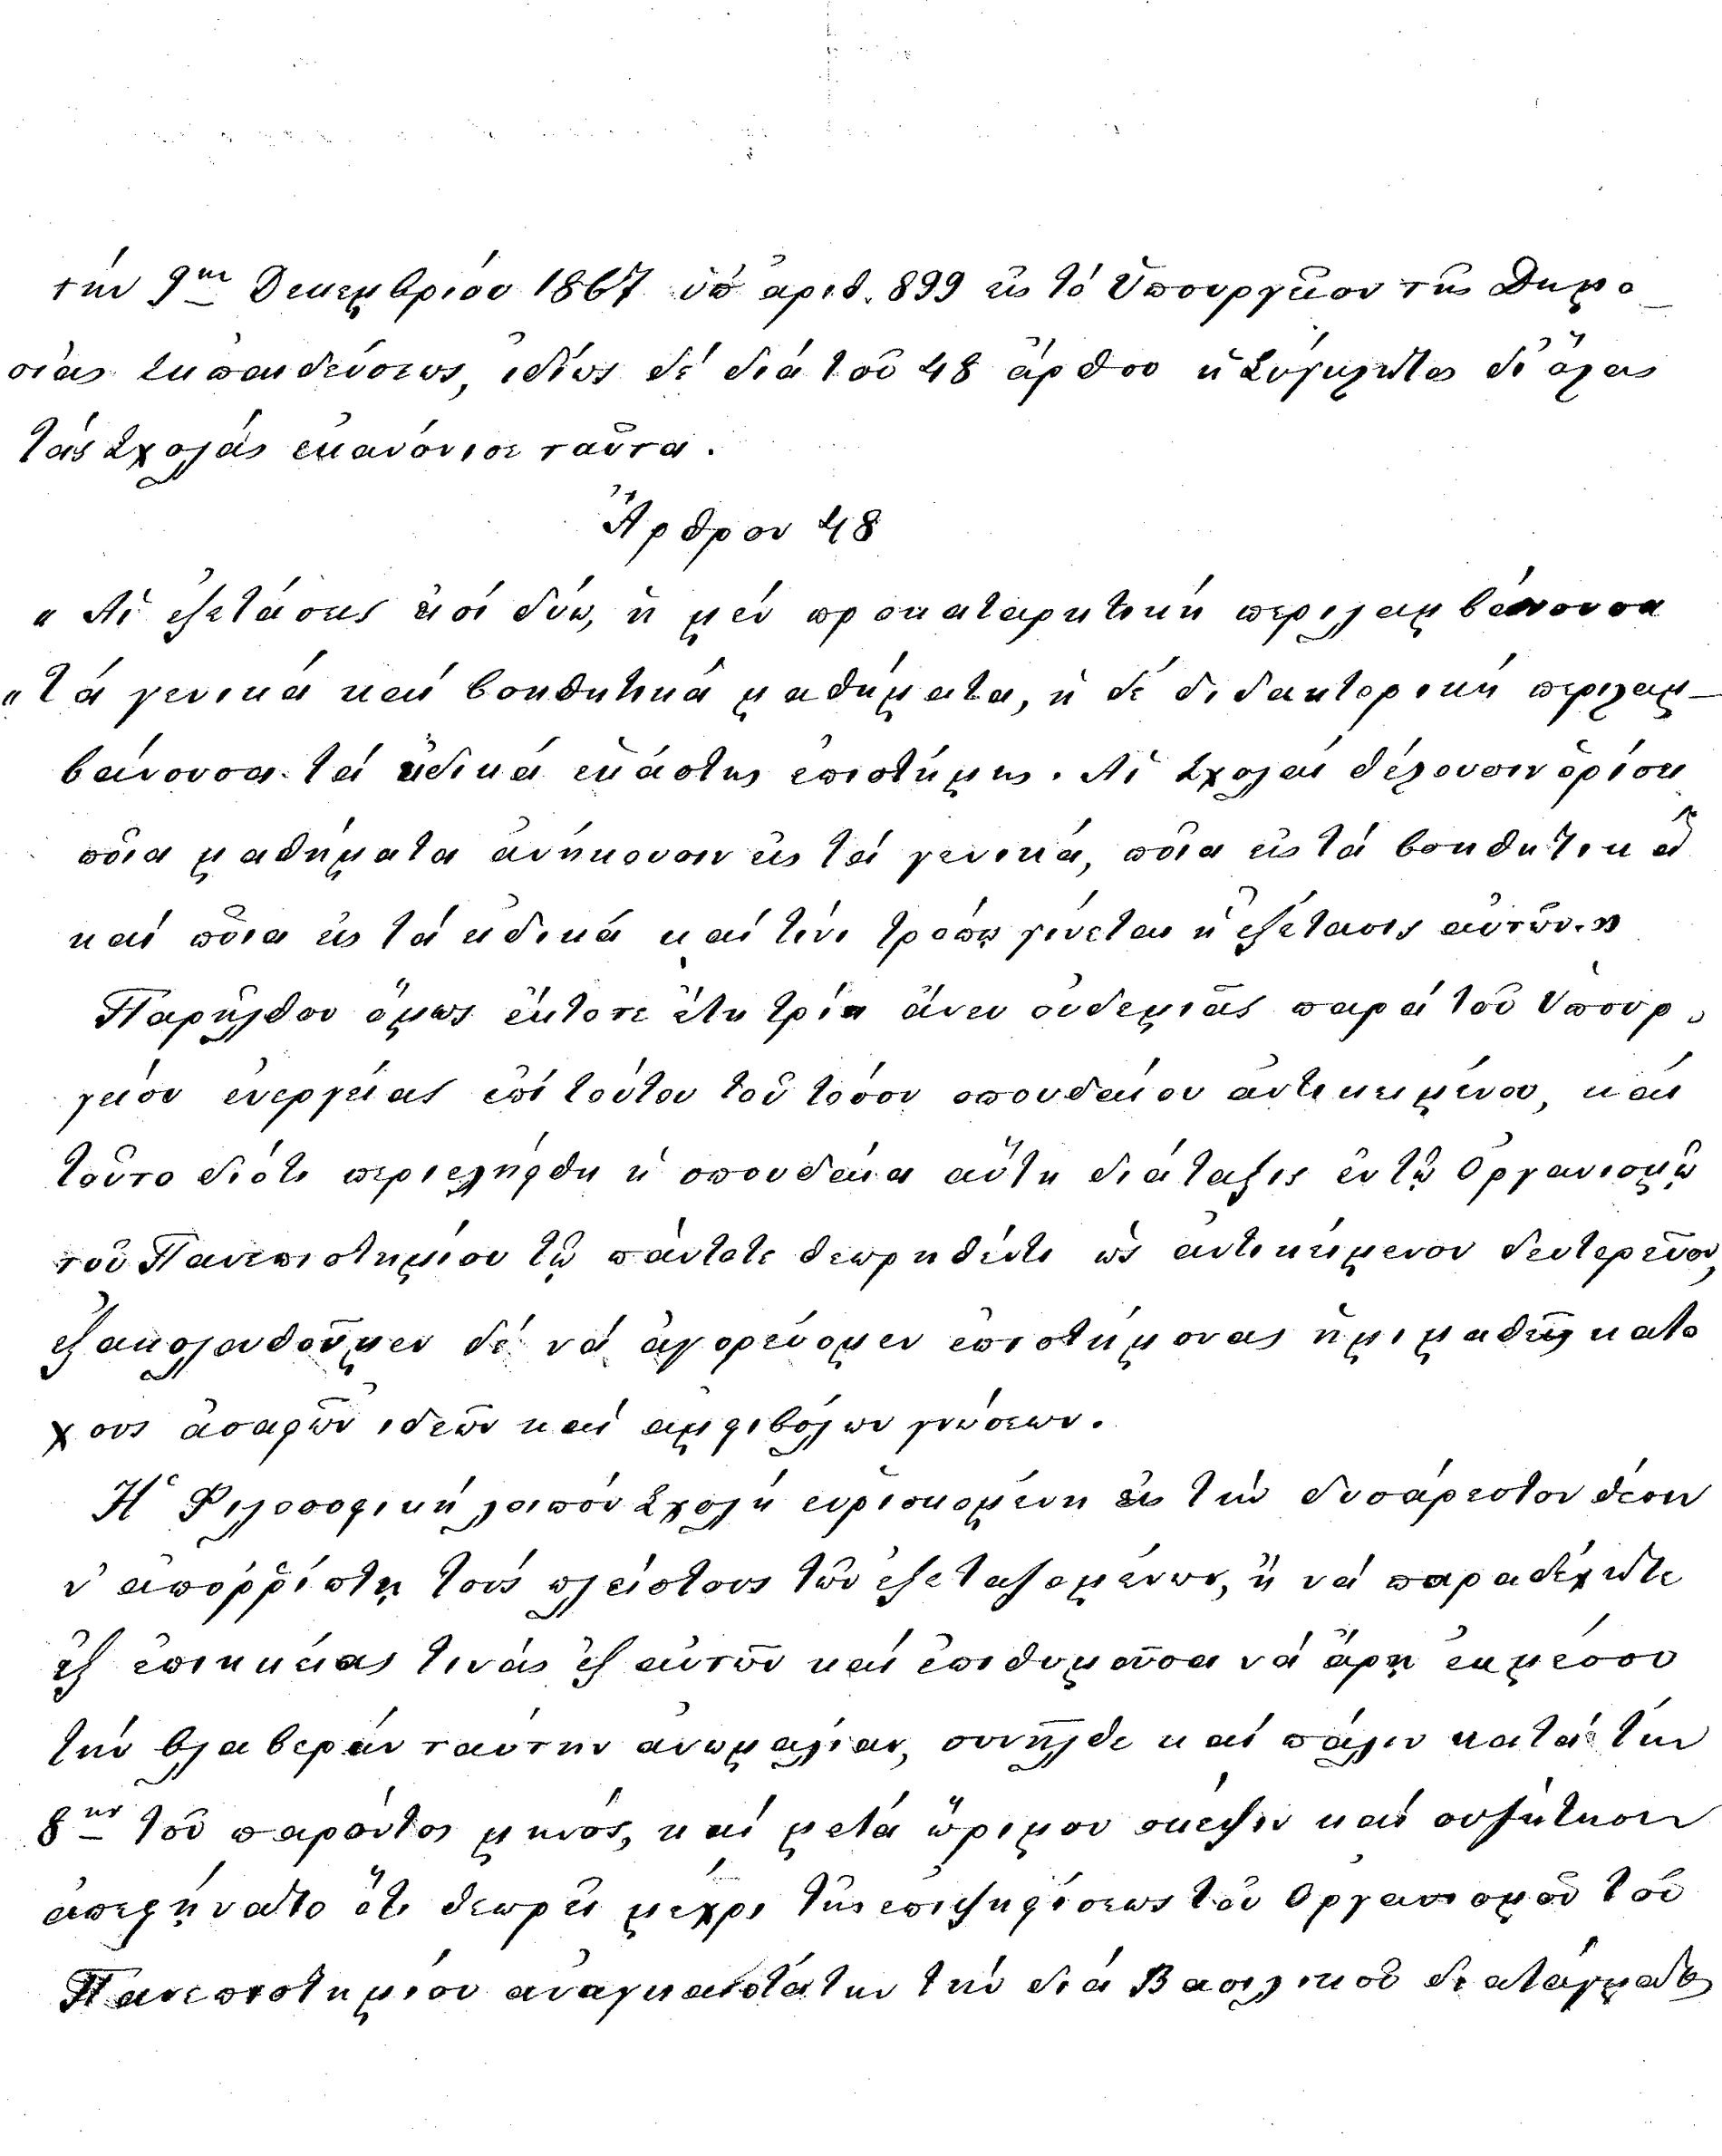 τήν 9ην Δεκεμβρίου 1867 ὑπ' ἀριθ. 899 εἰς τό Ὑπουργεῖον τῆς Δημο-
σίας Ἐκπαιδεύσεως, ἰδίως δέ διά τοῦ 48 ἄρθρου ἡ Σύγκλητος δι' ὅλας
τάς Σχολάς ἐκανόνισε ταῦτα.
Ἄρθρον 48
« Αἱ ἐξετάσεις εἰσί δύω, ἡ μέν προκαταρκτική περιλαμβάνουσα
« τά γενικά καί βοηθητικά μαθήματα, ἡ δέ διδακτορική περιλαμ-
βάνουσα τά εἰδικά ἑκάστης ἐπιστήμης. Αἱ Σχολαί θέλουσιν ὁρίσει
ποῖα μαθήματα ἀνήκουσιν εἰς τά γενικά, ποῖα εἰς τά βοηθητικά
καί ποῖα εἰς τά εἰδικά καί τίνι τρόπῳ γίνεται ἡ ἐξέτασις αὐτῶν.»
Παρῆλθον ὅμως ἔκτοτε ἔτη τρία ἄνευ οὐδεμιᾶς παρά τοῦ Ὑπουρ-
γείου ἐνεργείας ἐπί τούτου τοῦ τόσον σπουδαίου ἀντικειμένου, καί
τοῦτο διότι περιελήφθη ἡ σπουδαία αὕτη διάταξις ἐν τῷ Ὀργανισμῷ
τοῦ Πανεπιστημίου τῷ πάντοτε θεωρηθέντι ὡς ἀντικείμενον δευτερεῦον,
ἐξακολουθοῦμεν δέ νά ἀγορεύομεν ἐπιστήμονας ἡμιμαθεῖς κατό
χους ἀσαφῶν ἰδεῶν καί ἀμφιβόλων γνώσεων.
Ἡ Φιλοσοφική λοιπόν Σχολή εὑρισκομένη εἰς τήν δυσάρεστον θέσιν
ν' ἀπορρίπτῃ τούς πλείστους τῶν ἐξεταζομένων, ἤ νά παραδέχηται
ἐξ ἐπιεικείας τινάς ἐξ αὐτῶν καί ἐπιθυμοῦσα νά ἄρῃ ἐκ μέσου
τήν βλαβεράν ταύτην ἀνωμαλίαν, συνῆλθε καί πάλιν κατά τήν
8ην τοῦ παρόντος μηνός, καί μετά ὥριμον σκέψιν καί συζήτησιν
ἀπεφήνατο ὅτι θεωρεῖ μέχρι τῆς ἐπιψηφίσεως τοῦ Ὀργανισμοῦ τοῦ
Πανεπιστημίου ἀναγκαιοτάτην τήν διά Βασιλικοῦ διατάγματος